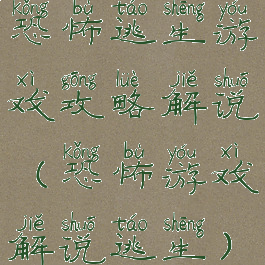 kǒng bù táo shēng yóu
恐怖逃生游
xì gōng lüè jiě shuō
戏攻略解说
kǒng bù yóu xì
(恐怖游戏
jiě shuō táo shēng
解说逃生)